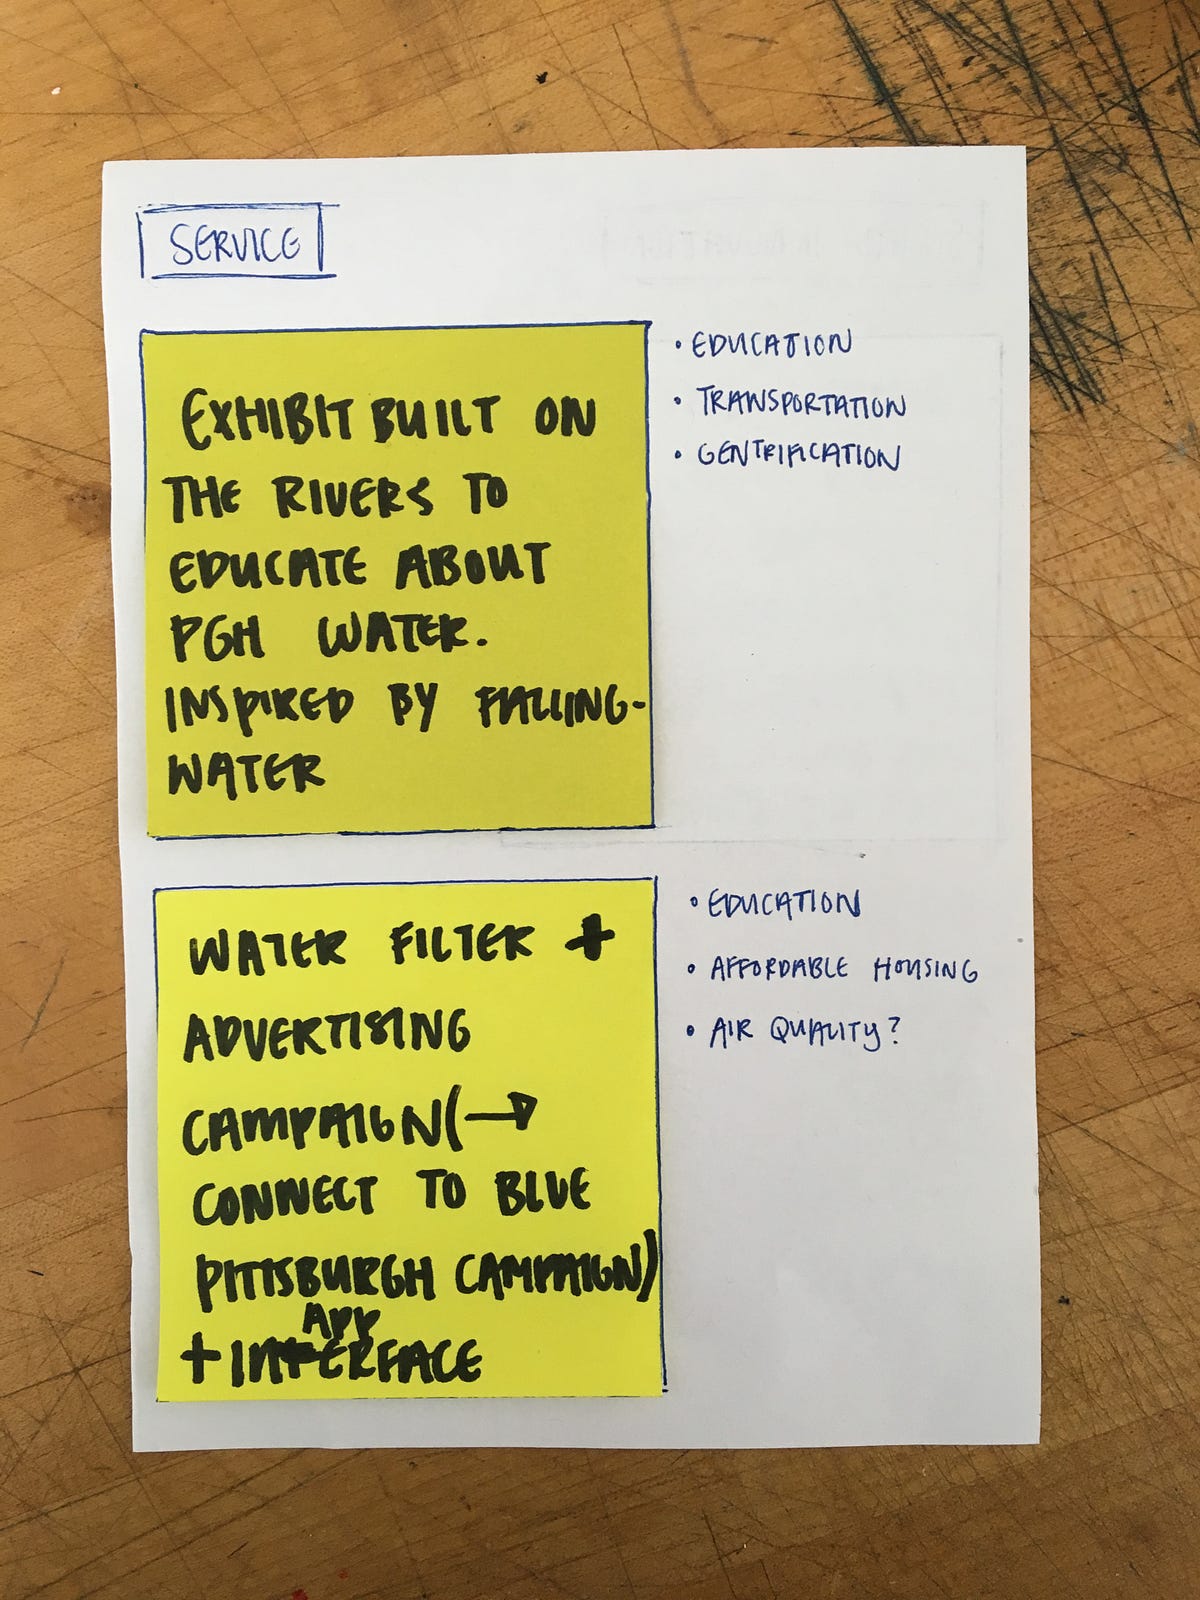 SERVICE
EXHIBIT BUILT ON
THE RIVERS TO
EDUCATE ABOUT
PGH WATER.
INSPIRED BY FALLING-
WATER
• EDUCATION
• TRANSPORTATION
• GENTRIFICATION
WATER FILTER +
ADVERTISING
CAMPAIGN (→
CONNECT TO BLUE
PITTSBURGH CAMPAIGN)
APP
+ INTERFACE
• EDUCATION
• AFFORDABLE HOUSING
• AIR QUALITY?